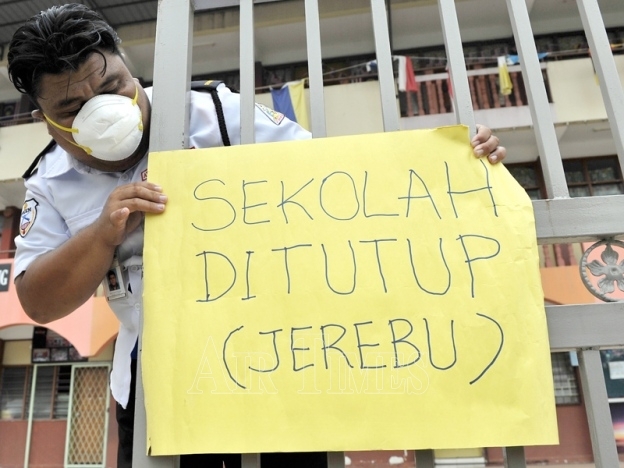 SEKOLAH
DITUTUP
(JEREBU)
AIR TIMES